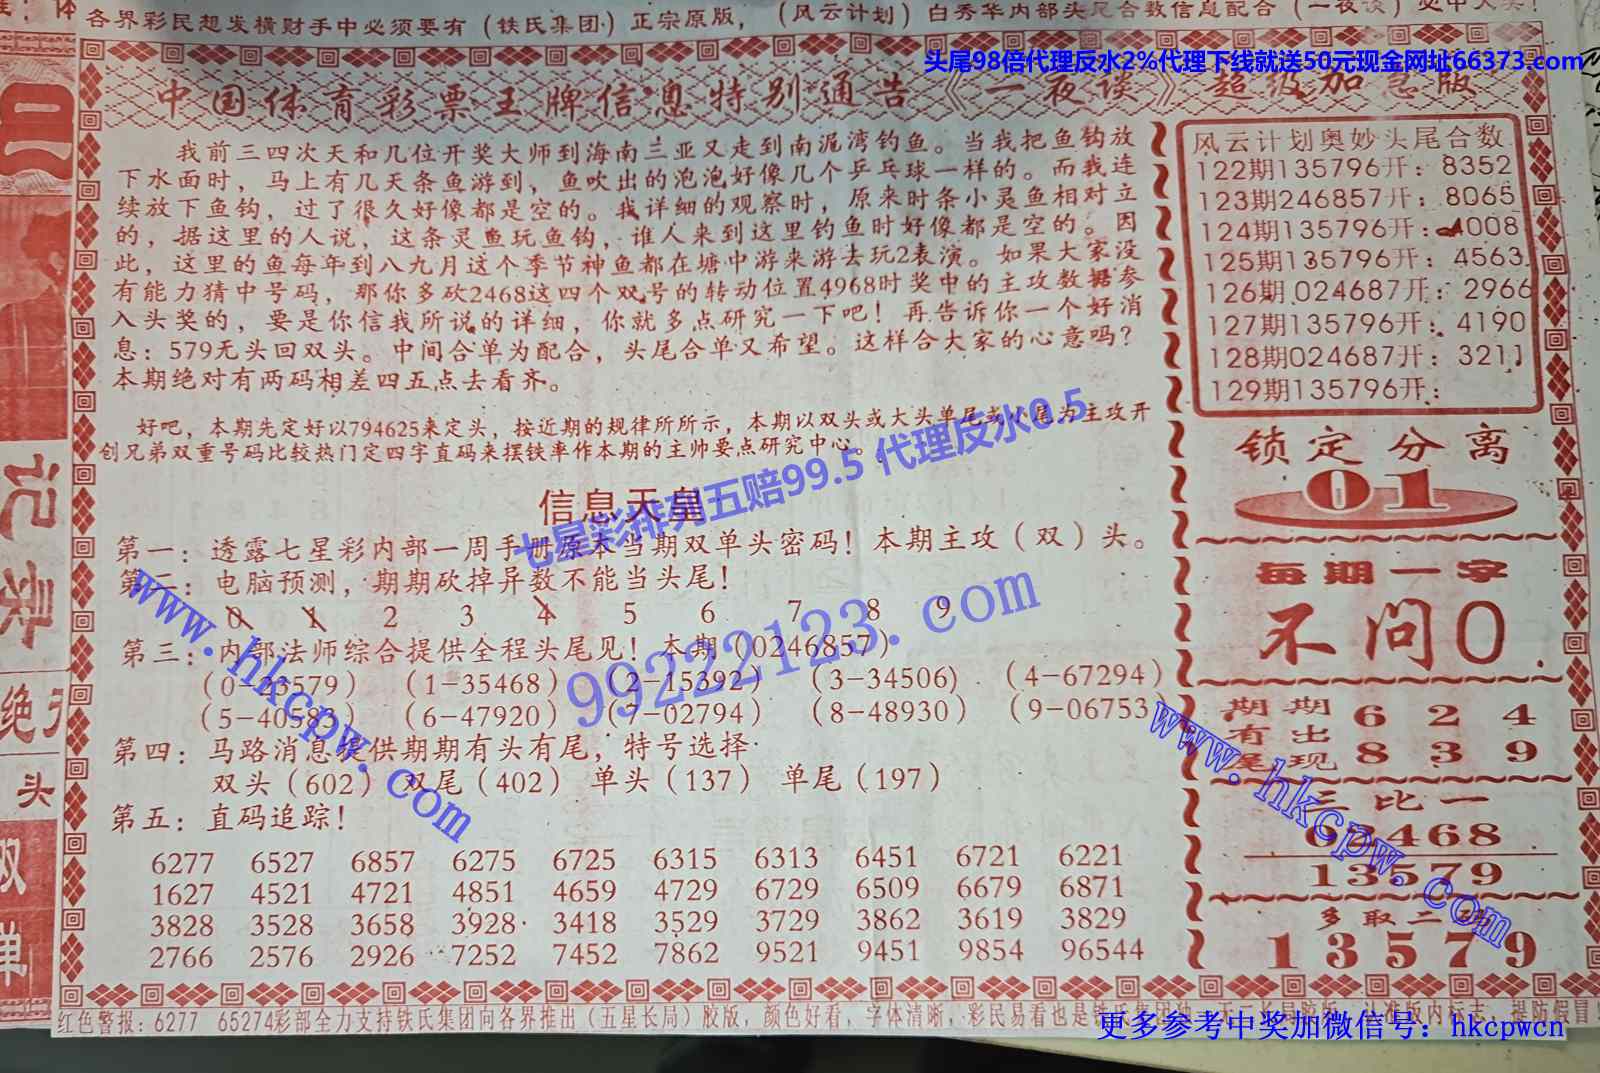 各界彩民想发横财手中必须要有（铁氏集团·）正宗原版，（风云计划）白秀华内部头尾合数信息配合（一夜谈）必中大奖！
头尾98倍代理反水2%代理下线就送50元现金网址66373.com
中国体育彩票王牌信息特别通告《一夜谈》超级加急版
我前三四次天和几位开奖大师到海南兰亚又走到南泥湾钓鱼。当我把鱼钩放
下水面时，马上有几天条鱼游到，鱼吹出的泡泡好像几个乒乓球一样的。而我连
续放下鱼钩，过了很久好像都是空的。我详细的观察时，原来时条小灵鱼相对立
的，据这里的人说，这条灵鱼玩鱼钩，谁人来到这里钓鱼时好像都是空的。因
此，这里的鱼每年到八九月这个季节神鱼都在塘中游来游去玩2表演。如果大家没
有能力猜中号码，那你多砍2468这四个双号的转动位置4968时奖中的主攻数据参
入头奖的，要是你信我所说的详细，你就多点研究一下吧！再告诉你一个好消
息：579无头回双头。中间合单为配合，头尾合单又希望。这样合大家的心意吗？
本期绝对有两码相差四五点去看齐。
好吧，本期先定好以794625来定头，按近期的规律所所示，本期以双头或大头单尾或小尾为主攻开
创兄弟双重号码比较热门定四字直码来摆铁率作本期的主帅要点研究中心。
七星彩排列五赔99.5 代理反水0.5
信息天皇
第一：透露七星彩内部一周手册原本当期双单头密码！本期主攻（双）头。
第二：电脑预测，期期砍掉异数不能当头尾！
0 1 2 3 4 5 6 7 8 9
第三：内部法师综合提供全程头尾见！本期（0246857）
（0-23579） （1-35468） （2-15392） （3-34506） （4-67294）
（5-40583） （6-47920） （7-02794） （8-48930） （9-06753）
第四：马路消息提供期期有头有尾，特号选择
双头（602）双尾（402） 单头（137） 单尾（197）
第五：直码追踪！
6277 6527 6857 6275 6725 6315 6313 6451 6721 6221
1627 4521 4721 4851 4659 4729 6729 6509 6679 6871
3828 3528 3658 3928 3418 3529 3729 3862 3619 3829
2766 2576 2926 7252 7452 7862 9521 9451 9854 96544
www.hkcpw.com
99222123.com
风云计划奥妙头尾合数
122期135796开：8352
123期246857开：8065
124期135796开：4008
125期135796开：4563
126期024687开：2966
127期135796开：4190
128期024687开：3211
129期135796开：
锁定分离
01
每期一字
不问0
期期 6 2 4
有出
尾现 8 3 9
三比一
02468
13579
多取二码
13579
www.hkcpw.com
红色警报：6277 65274彩部全力支持铁氏集团向各界推出（五星长局）胶版，颜色好看，字体清晰，彩民易看也是铁氏集团独一无二长局胶版，认准版内标志，提防假冒！
更多参考中奖加微信号：hkcpwcn
记
绝
头
双